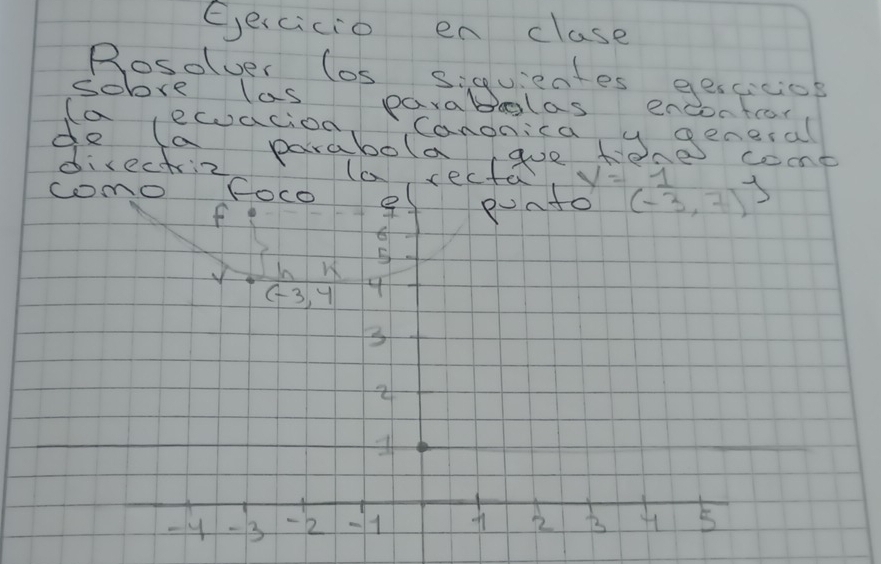 Ejercicio en clase
Rosolver los siguientes gercicios
sobre las parabolas encontrar
la ecuacion canonica y general
de la parabola que tiene como
directriz la recta y=1 y
como foco el punto (-3,7)
F 7
6
5
h k
V (-3,4 4
3
2
1
-4 -3 -2 -1 1 2 3 4 5